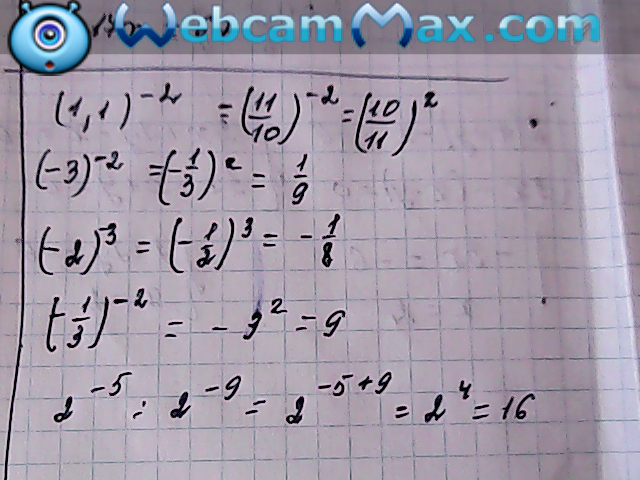 WebcamMax.com
(1,1)^-2 = (11/10)^-2 = (10/11)^2
(-3)^-2 = (-1/3)^2 = 1/9
(-2)^-3 = (-1/2)^3 = -1/8
(-1/3)^-2 = -3^2 = 9
2^-5 : 2^-9 = 2^-5+9 = 2^4 = 16